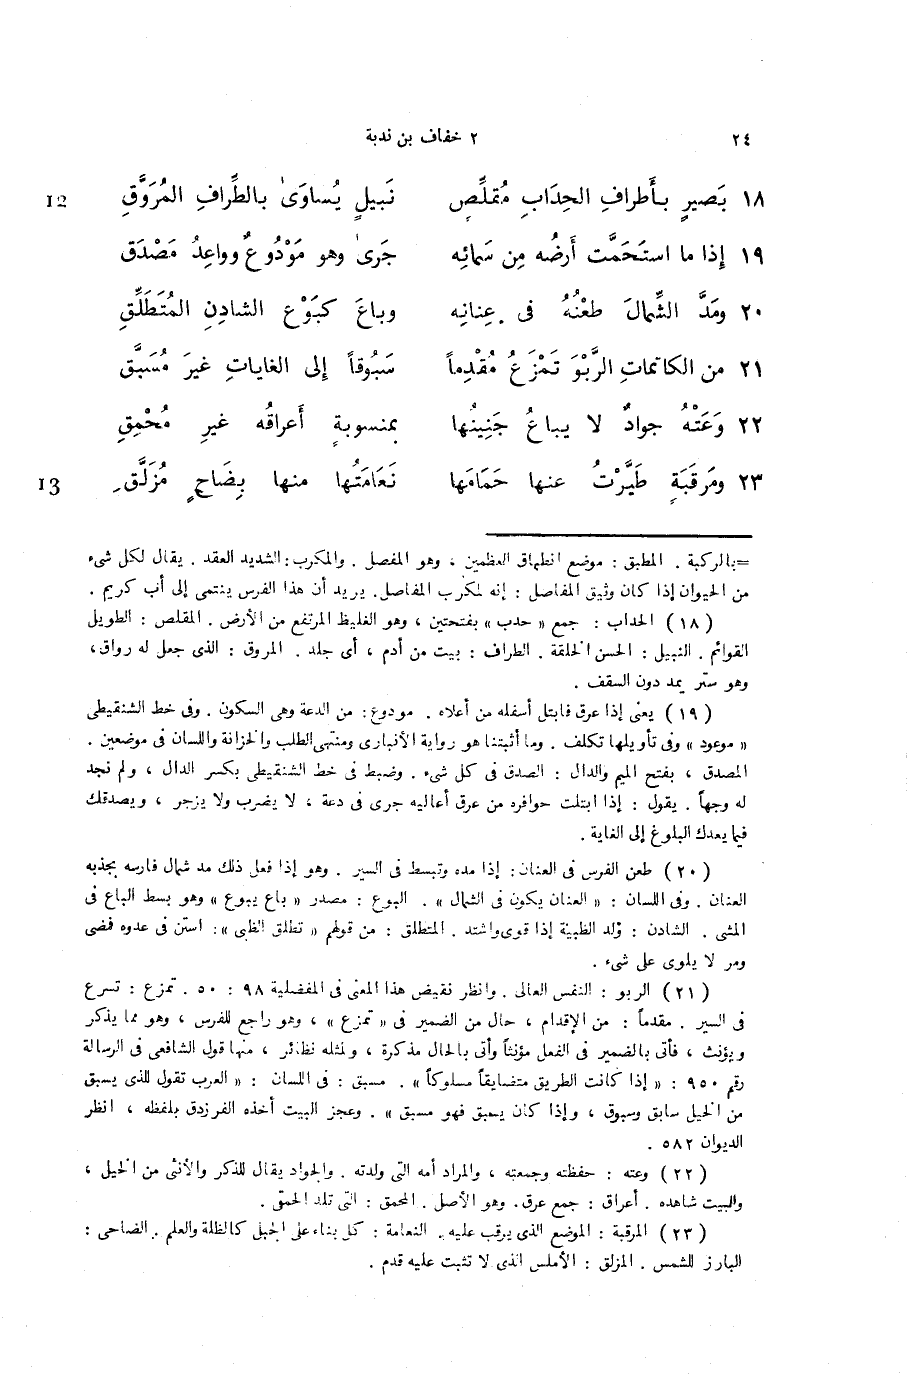 ٢٤ ٢ خفاف بن ندبة
١٨ بَصيرٍ بأَطرافِ الحِدَابِ مُقلِّصٍ نَبيلٍ يُساوَىٰ بالطِّرافِ المُرَوَّقِ 12
١٩ إذا ما استَحَمَّت أَرضُه مِن سَمائِه جَرىٰ وهو مَوْدُوعٌ وواعِدُ مَصْدَقِ
٢٠ ومَدَّ الشِّمالَ طعْنُهُ فى عِنانِه وباعَ كبَوْعِ الشادِنِ المُتَطَلِّقِ
٢١ من الكاتماتِ الرَّبْوَ تَمْزَعُ مُقْدِماً سَبُوقاً إلى الغاياتِ غيرَ مُسَبَّقِ
٢٢ وَعَتْهُ جوادٌ لا يباعُ جَنِينُها بمنسوبةٍ أَعراقُه غيرِ مُحْمِقِ
٢٣ ومَرقَبَةٍ طَيَّرْتُ عنها حَمَامَها نَعَامَتُها منها بِضَاحٍ مُزَلَّقِ 13
=بالركبة . المطبق : موضع انطباق العظمين ، وهو المفصل . والمكرب : الشديد العقد . يقال لكل شىء
من الحيوان إذا كان وثيق المفاصل : إنه لمكرب المفاصل. يريد أن هذا الفرس ينتمى إلى أب كريم .
(١٨) الحداب : جمع « حدب » بفتحتين ، وهو الغليظ المرتفع من الأرض . المقلص : الطويل
القوائم . النبيل : الحسن الخلقة . الطراف : بيت من أدم ، أى جلد . المروق : الذى جعل له رواق ،
وهو ستر يمد دون السقف .
(١٩) يعنى إذا عرق فابتل أسفله من أعلاه . مودوع : من الدعة وهى السكون . وفى خط الشنقيطى
« موعود » وفى تأويلها تكلف . وما أثبتنا هو رواية الأنبارى ومنتهى الطلب والخزانة واللسان فى موضعين .
المصدق ، بفتح الميم والدال : الصدق فى كل شىء . وضبط فى خط الشنقيطى بكسر الدال ، ولم نجد
له وجهاً . يقول : إذا ابتلت حوافره من عرق أعاليه جرى فى دعة ، لا يضرب ولا يزجر ، ويصدقك
فيما يعدك البلوغ إلى الغاية .
(٢٠) طعن الفرس فى العنان : إذا مده وتبسط فى السير . وهو إذا فعل ذلك مد شمال فارسه بجذبه
العنان . وفى اللسان : « العنان يكون فى الشمال » . البوع : مصدر « باع يبوع » وهو بسط الباع فى
المشى . الشادن : ولد الظبية إذا قوى واشتد . المتطلق : من قولهم « تطلق الظبى » : استن فى عدوه فمضى
ومر لا يلوى على شىء .
(٢١) الربو : النفس العالى . وانظر نقيض هذا المعنى فى المفضلية ٩٨ : ٥٠ . تمزع : تسرع
فى السير . مقدماً : من الإقدام ، حال من الضمير فى « تمزع » ، وهو راجع للفرس ، وهو مما يذكر
ويؤنث ، فأتى بالضمير فى الفعل مؤنثاً وأتى بالحال مذكرة ، ولمثله نظائر ، منها قول الشافعى فى الرسالة
رقم ٩٥٠ : « إذا كانت الطريق متضايقاً مسلوكاً » . مسبق : فى اللسان : « العرب تقول للذى يسبق
من الخيل سابق وسبوق ، وإذا كان يسبق فهو مسبق » . وعجز البيت أخذه الفرزدق بلفظه ، انظر
الديوان ٥٨٢ .
(٢٢) وعته : حفظته وجمعته ، والمراد أمه التى ولدته . والجواد يقال للذكر والأنثى من الخيل ،
والبيت شاهده . أعراق : جمع عرق . وهو الأصل . المحمق : التى تلد الحمق .
(٢٣) المرقبة : الموضع الذى يرقب عليه . النعامة : كل بناء على الجبل كالظلة والعلم . الضاحى :
البارز للشمس . المزلق : الأملس الذى لا تثبت عليه قدم .